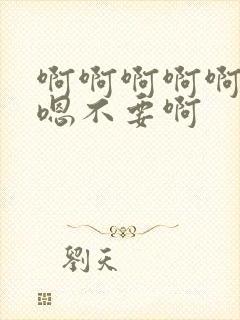 啊啊啊啊啊
嗯不要啊
劉天